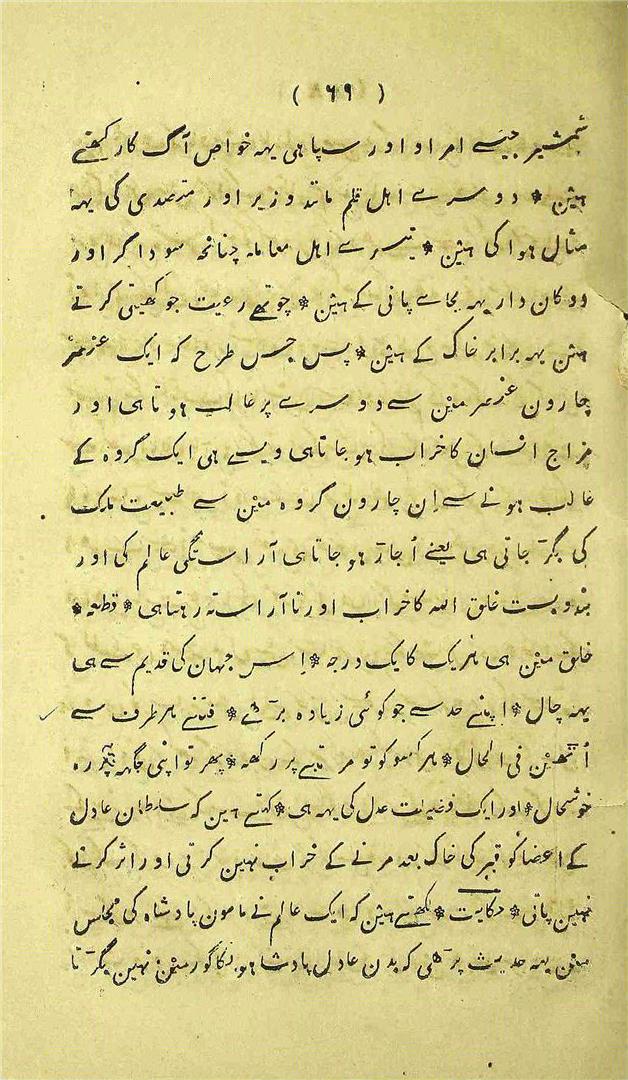 ( ٦٩ )
شمشیر جیسے امراو اور سپاهی یهه خواص آگ کا رکهتے
هین * دوسرے اهل قلم مانند وزیر اور متصدی کی یهه
مثال هوا کی هین * تیسرے اهل معامله چنانچه سوداگر اور
دوکان دار یهه بجاے پانی کے هین * چوتهے رعیت جو کهیتی کرتے
هین یهه برابر خاک کے هین * پس جس طرح که ایک عنصر
چارون عنصر مین سے دوسرے پر غالب هوتا هی اور
مزاج انسان کا خراب هو جاتا هی ویسے هی ایک گروه کے
غالب هونے سے اِن چارون گروه مین سے طبیعت ملک
کی بگڑ جاتی هی یعنے اُجاڑ هو جاتا هی آراستگی عالم کی اور
بندوبست خلق الله کا خراب اور ناآراسته رهتا هی * قطعه *
خلق مین هی هر یک کا یک درجه * اِس جهان کی قدیم سے هی
یهه چال * اپنے حد سے جو کوئی زیاده بڑهے * فتنے هر طرف سے
اُٹهین فی الحال * هر کسو کو تو مرتبے پر رکهه * پهر تو اپنی جگهه په ره
خوشحال * اور ایک فضیلت عدل کی یهه هی * کهتے هین که سلطان عادل
کے اعضا کو قبر کی خاک بعد مرنے کے خراب نهین کرتی اور اثر کرنے
نهین پاتی * حکایت * لکهتے هین که ایک عالم نے مامون پادشاه کی مجلس
مین یهه حدیث پڑهی که بدن عادل پادشاهونکا گور مین نهین بگڑتا